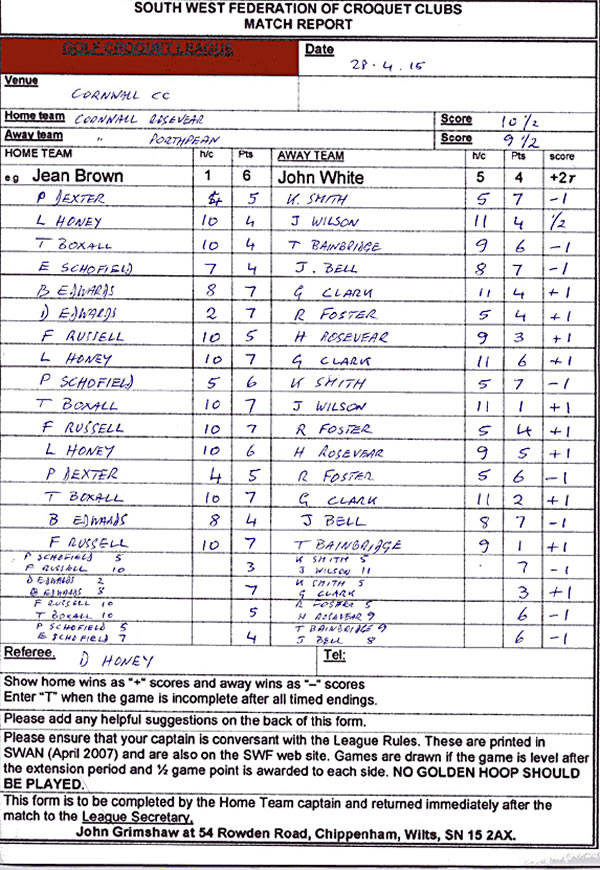 SOUTH WEST FEDERATION OF CROQUET CLUBS
MATCH REPORT
GOLF CROQUET LEAGUE Date 28.4.15
Venue CORNWALL CC
Home team CORNWALL ROSEVEAR Score 10 1/2
Away team " PORTHPEAN Score 9 1/2
HOME TEAM h/c Pts AWAY TEAM h/c Pts score
eg Jean Brown 1 6 John White 5 4 +2r
P DEXTER 4 5 K. SMITH 5 7 -1
L HONEY 10 4 J WILSON 11 4 1/2
T BOXALL 10 4 T BAINBRIDGE 9 6 -1
E SCHOFIELD 7 4 J. BELL 8 7 -1
B EDWARDS 8 7 G CLARK 11 4 +1
D EDWARDS 2 7 R FOSTER 5 4 +1
F RUSSELL 10 5 H ROSEVEAR 9 3 +1
L HONEY 10 7 G CLARK 11 6 +1
P SCHOFIELD 5 6 K SMITH 5 7 -1
T BOXALL 10 7 J WILSON 11 1 +1
F RUSSELL 10 7 R FOSTER 5 4 +1
L HONEY 10 6 H ROSEVEAR 9 5 +1
P DEXTER 4 5 R FOSTER 5 6 -1
T BOXALL 10 7 G CLARK 11 2 +1
B EDWARDS 8 4 J BELL 8 7 -1
F RUSSELL 10 7 T BAINBRIDGE 9 1 +1
P SCHOFIELD 5 K SMITH 5
F RUSSELL 10 3 J WILSON 11 7 -1
D EDWARDS 2 K SMITH 5
B EDWARDS 8 7 G CLARK 3 +1
F RUSSELL 10 R FOSTER 5
T BOXALL 10 5 H ROSEVEAR 9 6 -1
P SCHOFIELD 5 T BAINBRIDGE 9
E SCHOFIELD 7 4 J BELL 8 6 -1
Referee. D HONEY Tel:
Show home wins as "+" scores and away wins as "–" scores
Enter "T" when the game is incomplete after all timed endings.
Please add any helpful suggestions on the back of this form.
Please ensure that your captain is conversant with the League Rules. These are printed in
SWAN (April 2007) and are also on the SWF web site. Games are drawn if the game is level after
the extension period and ½ game point is awarded to each side. NO GOLDEN HOOP SHOULD
BE PLAYED.
This form is to be completed by the Home Team captain and returned immediately after the
match to the League Secretary,
John Grimshaw at 54 Rowden Road, Chippenham, Wilts, SN 15 2AX.